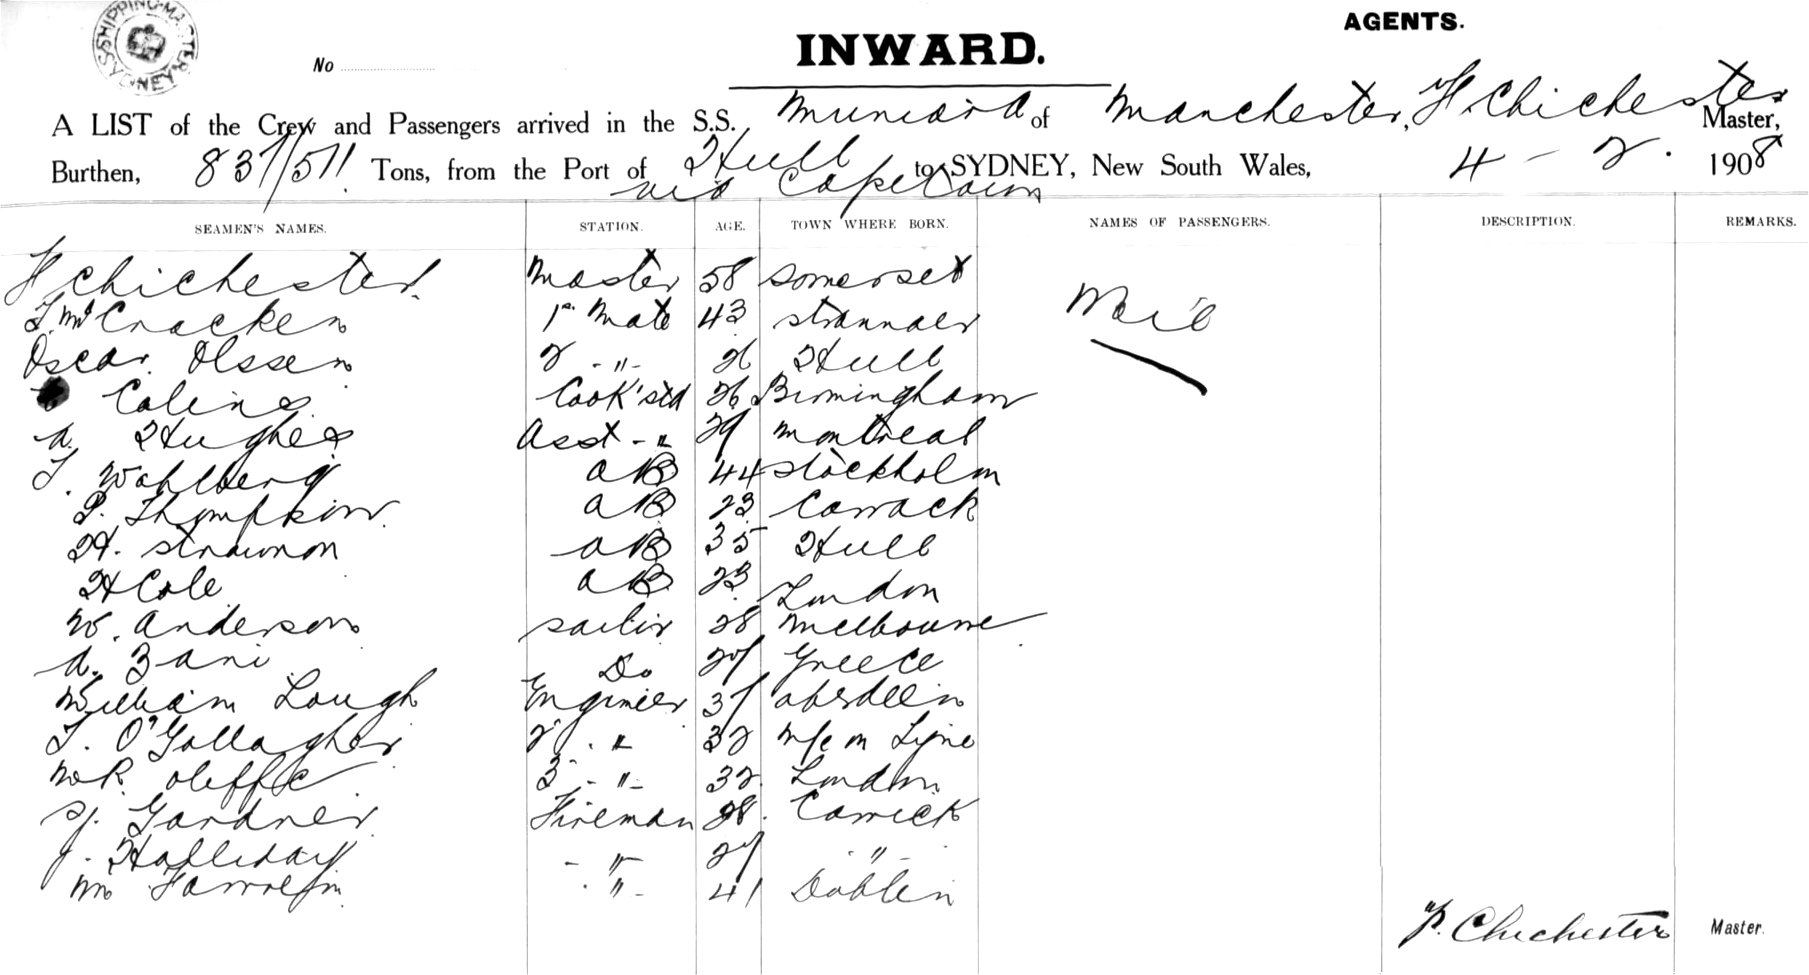 SHIPPING MASTER SYDNEY
AGENTS.
INWARD.
No
A LIST of the Crew and Passengers arrived in the S.S. of Manchester, H Chichester Master,
Burthen, 837/511 Tons, from the Port of Hull to SYDNEY, New South Wales, 4 - 2. 1908
via Capetown
SEAMEN'S NAMES. STATION. AGE. TOWN WHERE BORN. NAMES OF PASSENGERS. DESCRIPTION. REMARKS.
H Chichester Master 58 Somerset
T. McCracken 1st Mate 43 Stranraer
Oscar Olssen 2 - " - 26 Hull
Cook's 26 Birmingham
A. Hughes Asst - " 29 Montreal
T. Wahlberg AB 44 Stockholm
P. AB 23
H. AB 35 Hull
H Cole AB 23 London
W. Anderson Sailor 28 Melbourne
A. Zani Do 27 Greece
William Lough Engineer 37 Aberdeen
T. O'Gallagher 2 . " 32
3 - " - 32 London
Gardner Fireman 28 Carrick
J. Halliday - " - 27 - " -
Wm - " - 41 Doblin
Chichester Master.